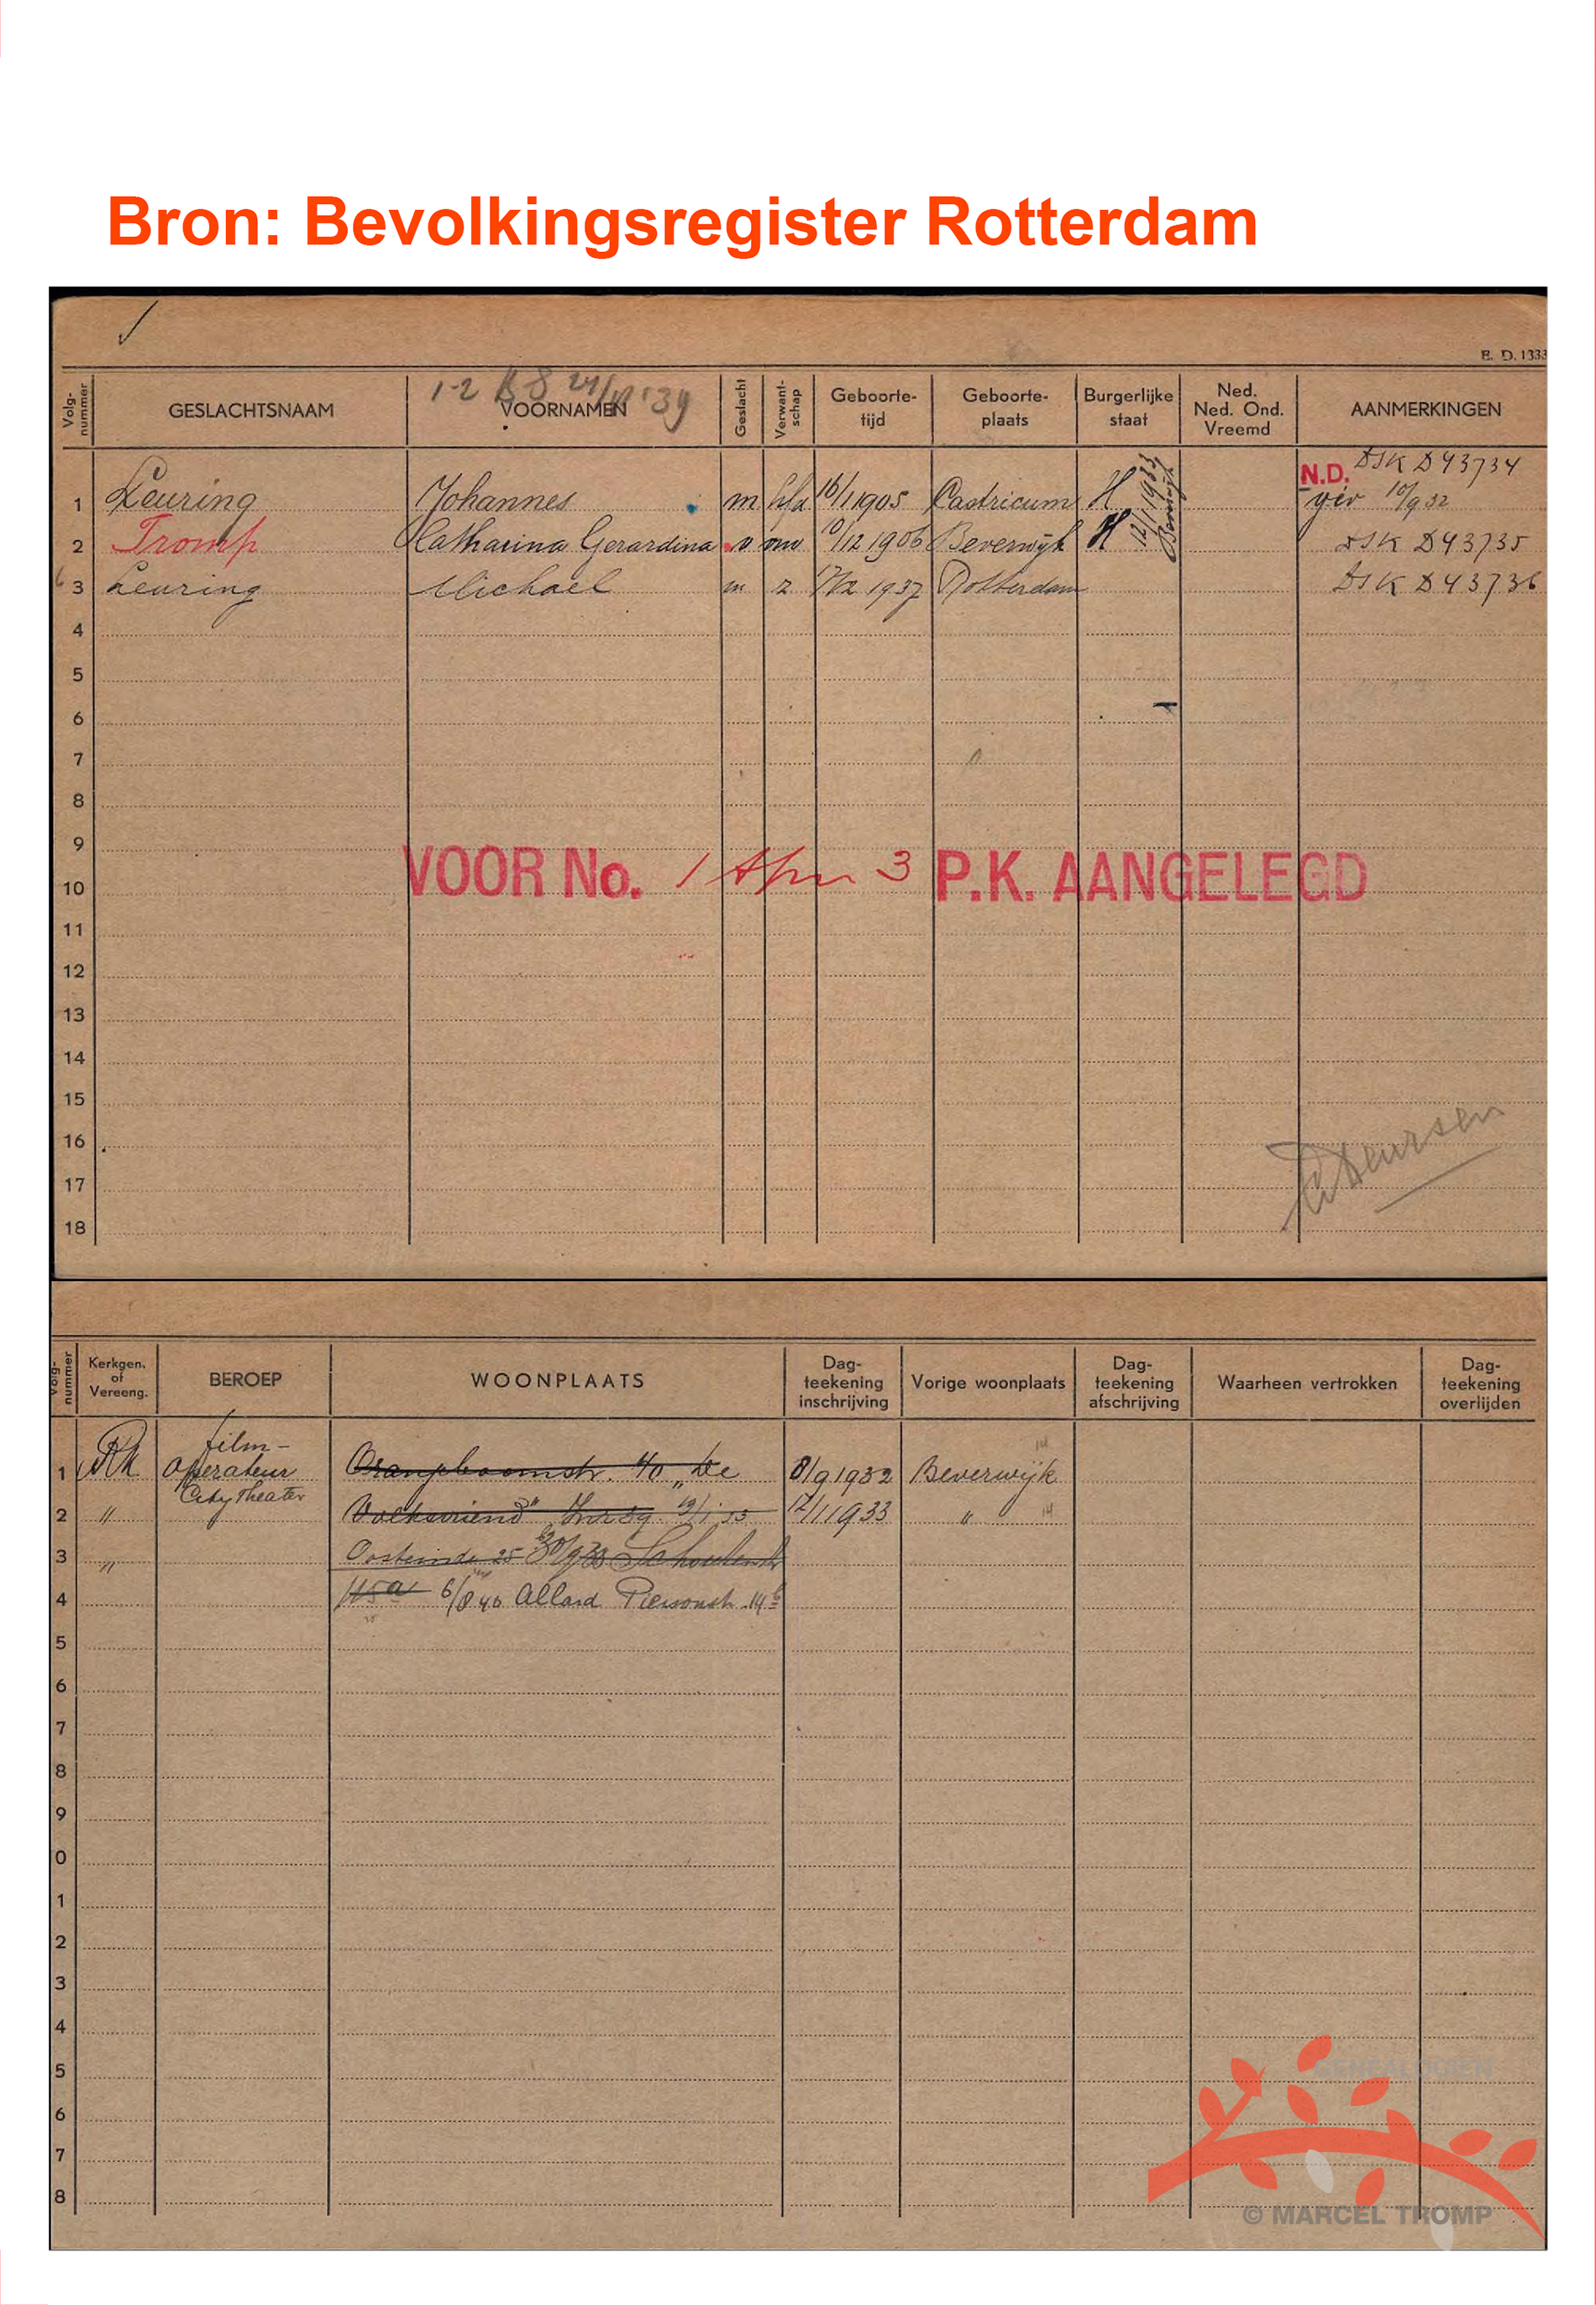 Bron: Bevolkingsregister Rotterdam
E. D. 1333
1-2
Volg-nummer GESLACHTSNAAM VOORNAMEN Geslacht Verwant-schap Geboorte-tijd Geboorte-plaats Burgerlijke staat Ned. Ned. Ond. Vreemd AANMERKINGEN
N.D. DSK D43734
1 Leuring Johannes m h/d 16/1 1905 Castricum H 10/9 32
2 Tromp Catharina Gerardina v 10/12 1906 Beverwijk H 12/1 1933 Beverwijk DSK D43735
3 Leuring Michael m z 1937 Rotterdam DSK D43736
4
5
6
7
8
9
VOOR No. 1 3 P.K. AANGELEGD
10
11
12
13
14
15
16
17
18
Volg-nummer Kerkgen. of Vereeng. BEROEP WOONPLAATS Dag-teekening inschrijving Vorige woonplaats Dag-teekening afschrijving Waarheen vertrokken Dag-teekening overlijden
film-
1 Rk operateur Oranjeboomstr. 40 "De 8/9 1932 Beverwijk
City Theater
2 " Volksvriend" 12/1 1933 "
3 " Oosteinde 25
4 115a 6/8 40 Allard Piersonstr. 14b
5
6
7
8
9
0
1
2
3
4
GENEALOGIEËN
5
6
7
8
© MARCEL TROMP